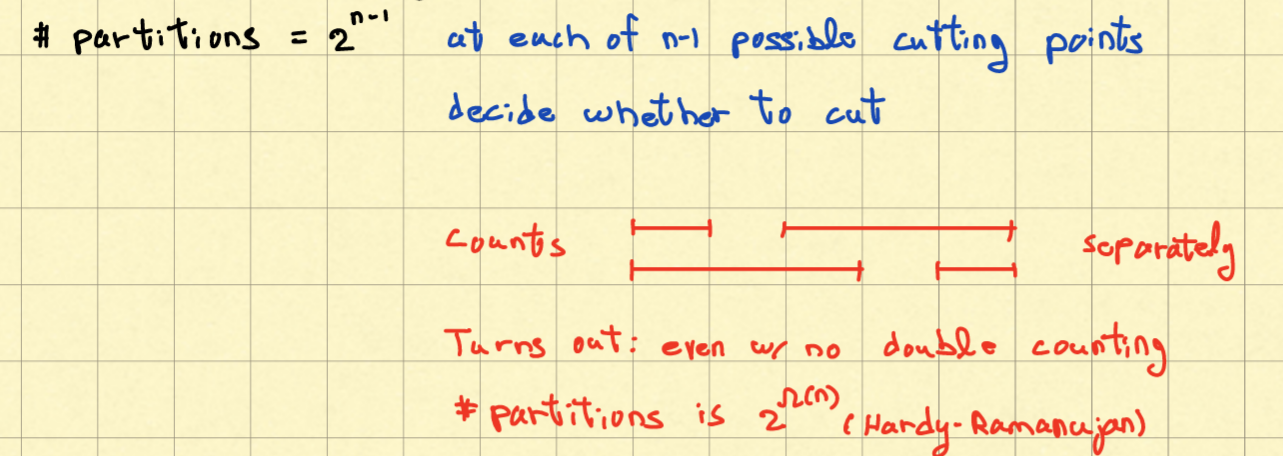 # partitions = 2^{n-1} at each of n-1 possible cutting points
decide whether to cut
counts separately
Turns out: even w/ no double counting
# partitions is 2^{Ω(n)} (Hardy-Ramanujan)